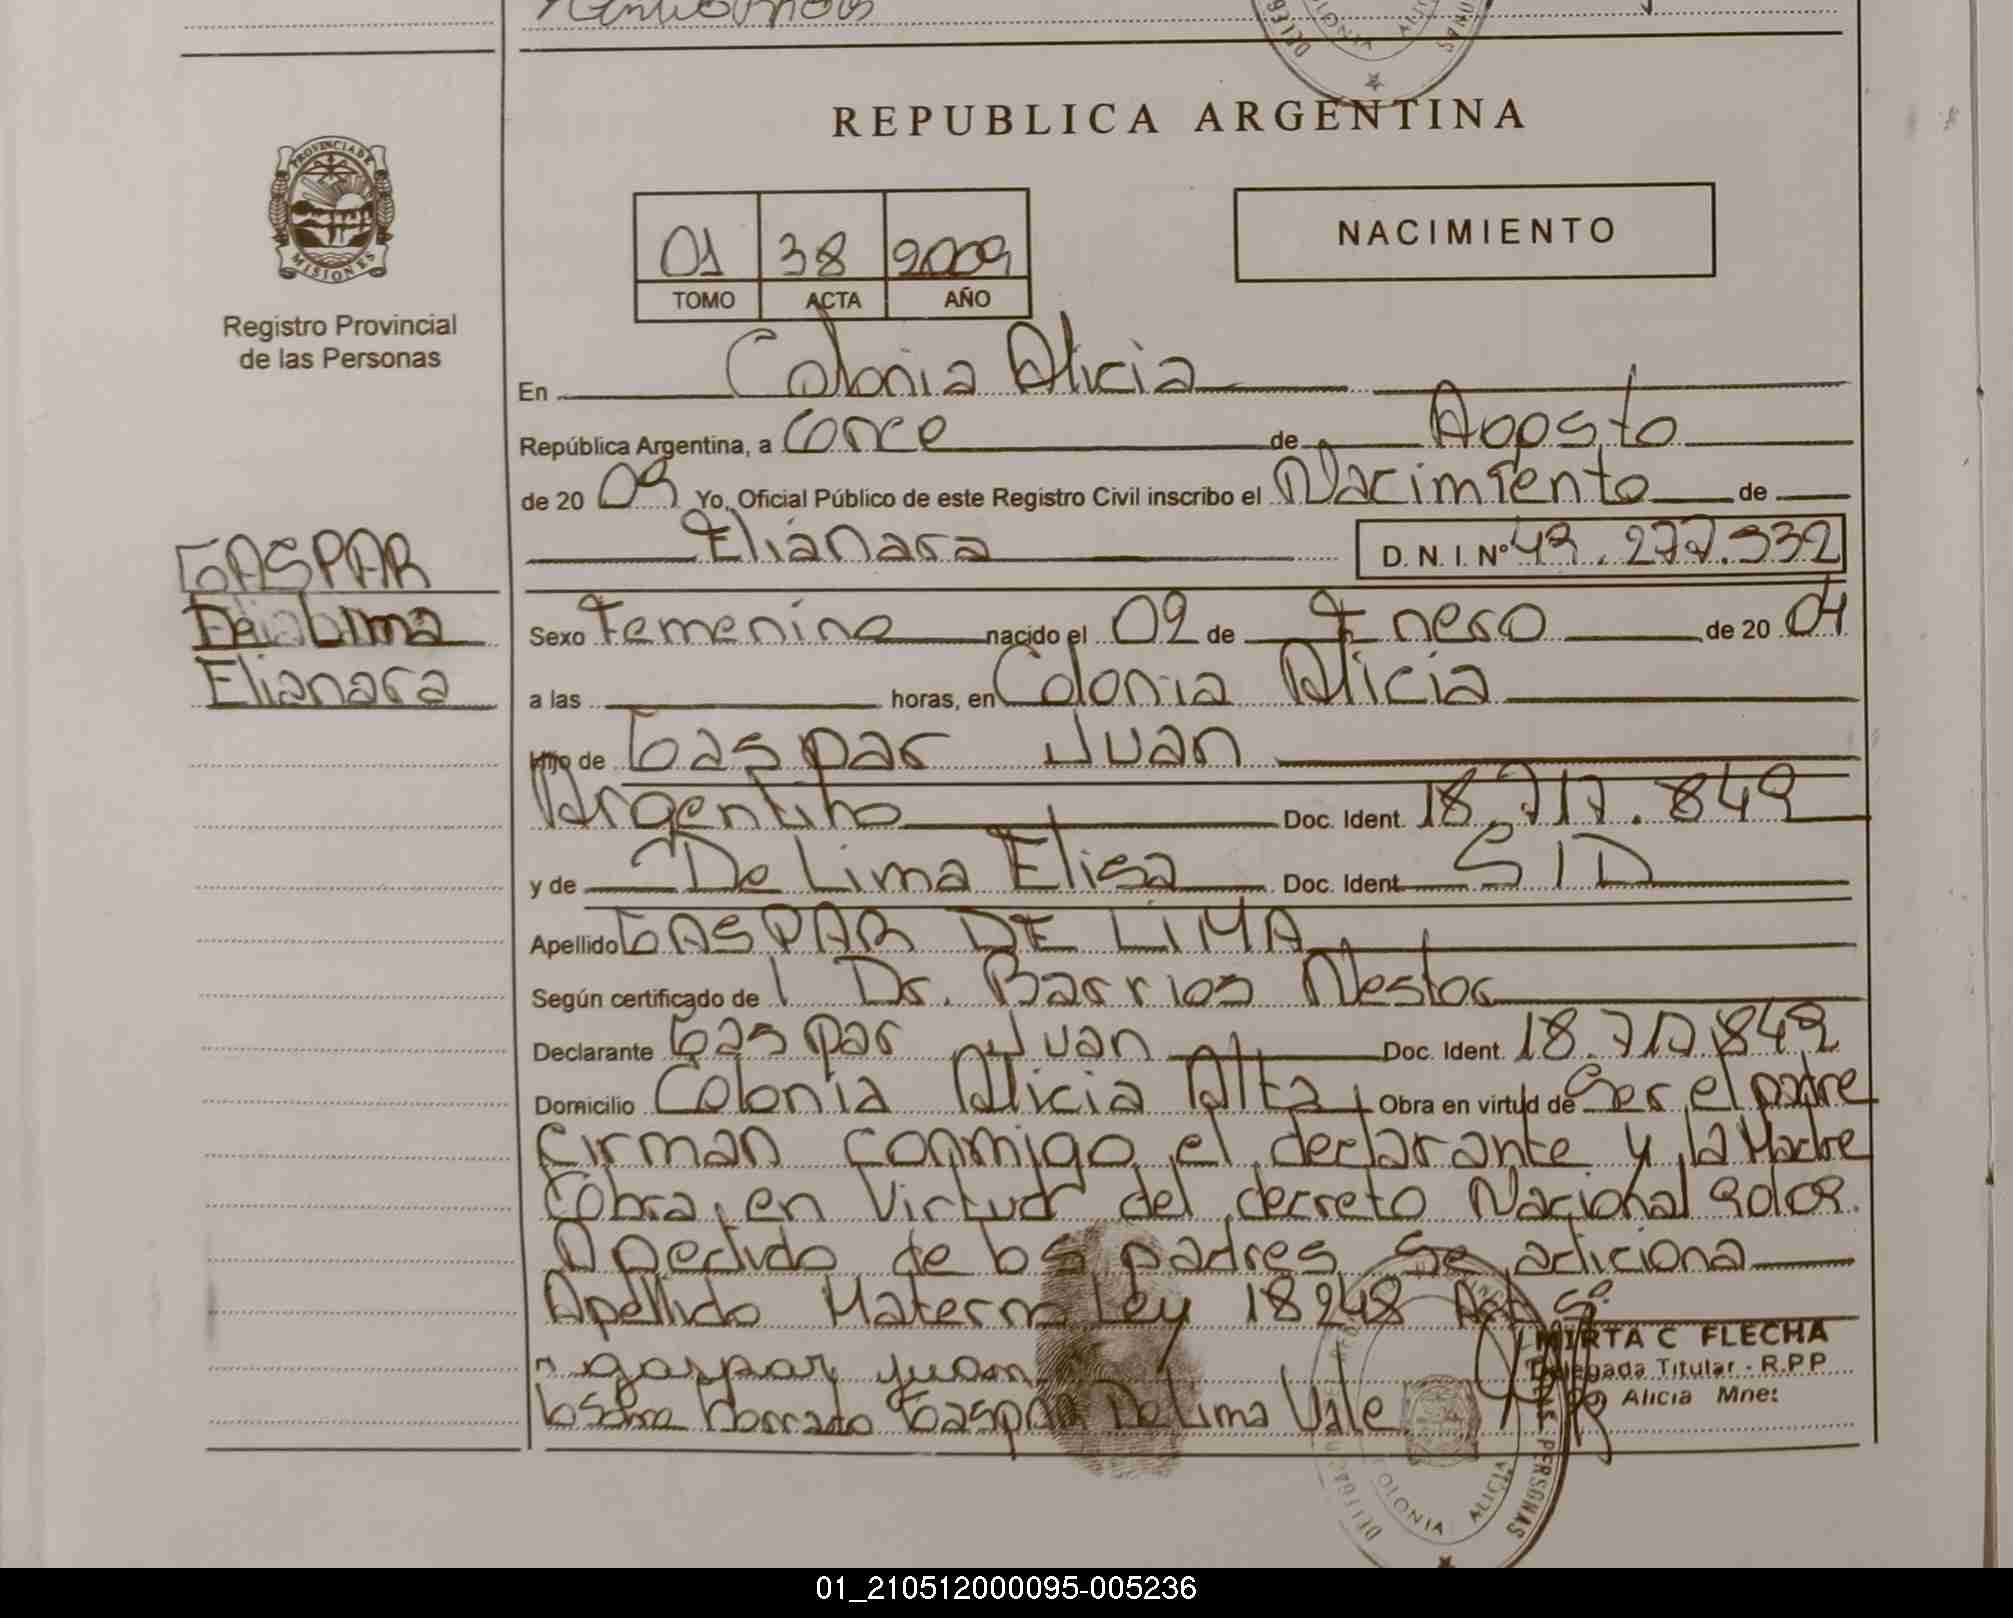 REPUBLICA ARGENTINA
PROVINCIA DE
MISIONES
Registro Provincial
de las Personas
NACIMIENTO
01 38 2009
TOMO ACTA AÑO
En Colonia Alicia
República Argentina, a once de Agosto
de 20 09 Yo, Oficial Público de este Registro Civil inscribo el Nacimiento de
Elianara D. N. I. Nº
GASPAR
De Lima
Elianara
Sexo Femenino nacido el 02 de Enero de 20 04
a las horas, en Colonia Alicia
Hijo de Gaspar Juan
Argentino Doc. Ident. 18.717.849
y de De Lima Elisa Doc. Ident. S/D
Apellido GASPAR DE LIMA
Según certificado de Dr. Barrios Nestor
Declarante Gaspar Juan Doc. Ident. 18.717.849
Domicilio Colonia Alicia Alta Obra en virtud de Ser el padre
firman conmigo el declarante y la Madre
Obra en Virtud del decreto Nacional 90/09.
A pedido de los padres se adiciona
Apellido Materno Ley 18248 Art 5º
gaspar juan
Gaspar De Lima Vale
MIRTA C FLECHA
Delegada Titular - R.P.P
Alicia Mnes
COLONIA ALICIA
PERSONAS
01_210512000095-005236